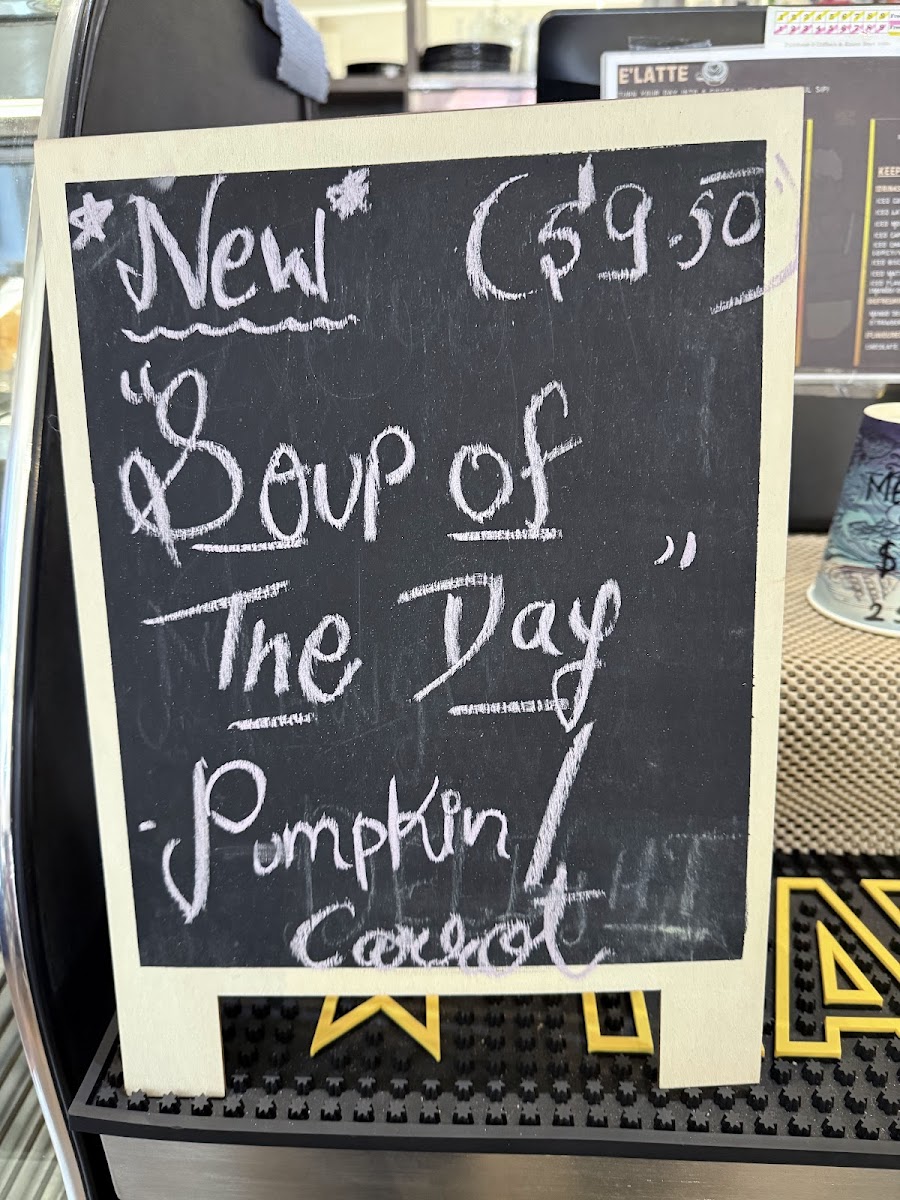 *New* ($9.50)
"Soup of
The Day"
Pumpkin/
Carrot
E'LATTE
KEEP
ME
$